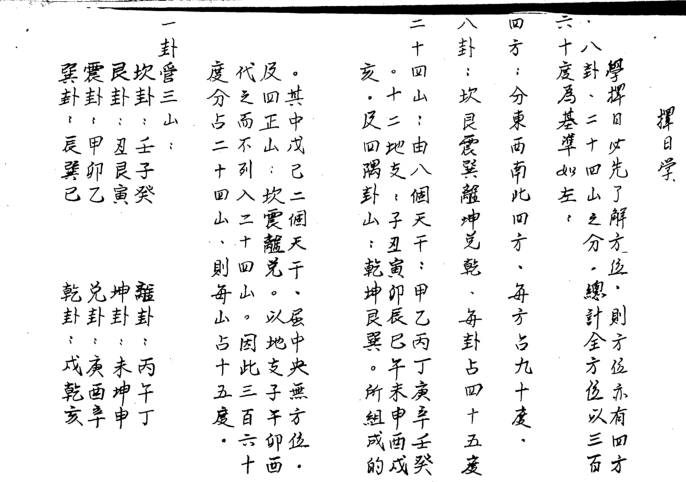 擇日学
學擇日必先了解方位,則方位亦有四方
、八卦、二十四山之分。總計全方位以三百
六十度為基準如左:
四方:分東西南北四方、每方占九十度。
八卦:坎艮震巽離坤兌乾、每卦占四十五度
二十四山:由八個天干:甲乙丙丁庚辛壬癸
。十二地支:子丑寅卯辰巳午未申酉戌
亥。及四隅卦山:乾坤艮巽。所組成的
。其中戊己二個天干、居中央無方位。
及四正山:坎震離兌。以地支子午卯酉
代之而不列入二十四山。因此三百六十
度分占二十四山、則每山占十五度。
一卦管三山:
坎卦:壬子癸 離卦:丙午丁
艮卦:丑艮寅 坤卦:未坤申
震卦:甲卯乙 兌卦:庚酉辛
巽卦:辰巽巳 乾卦:戌乾亥